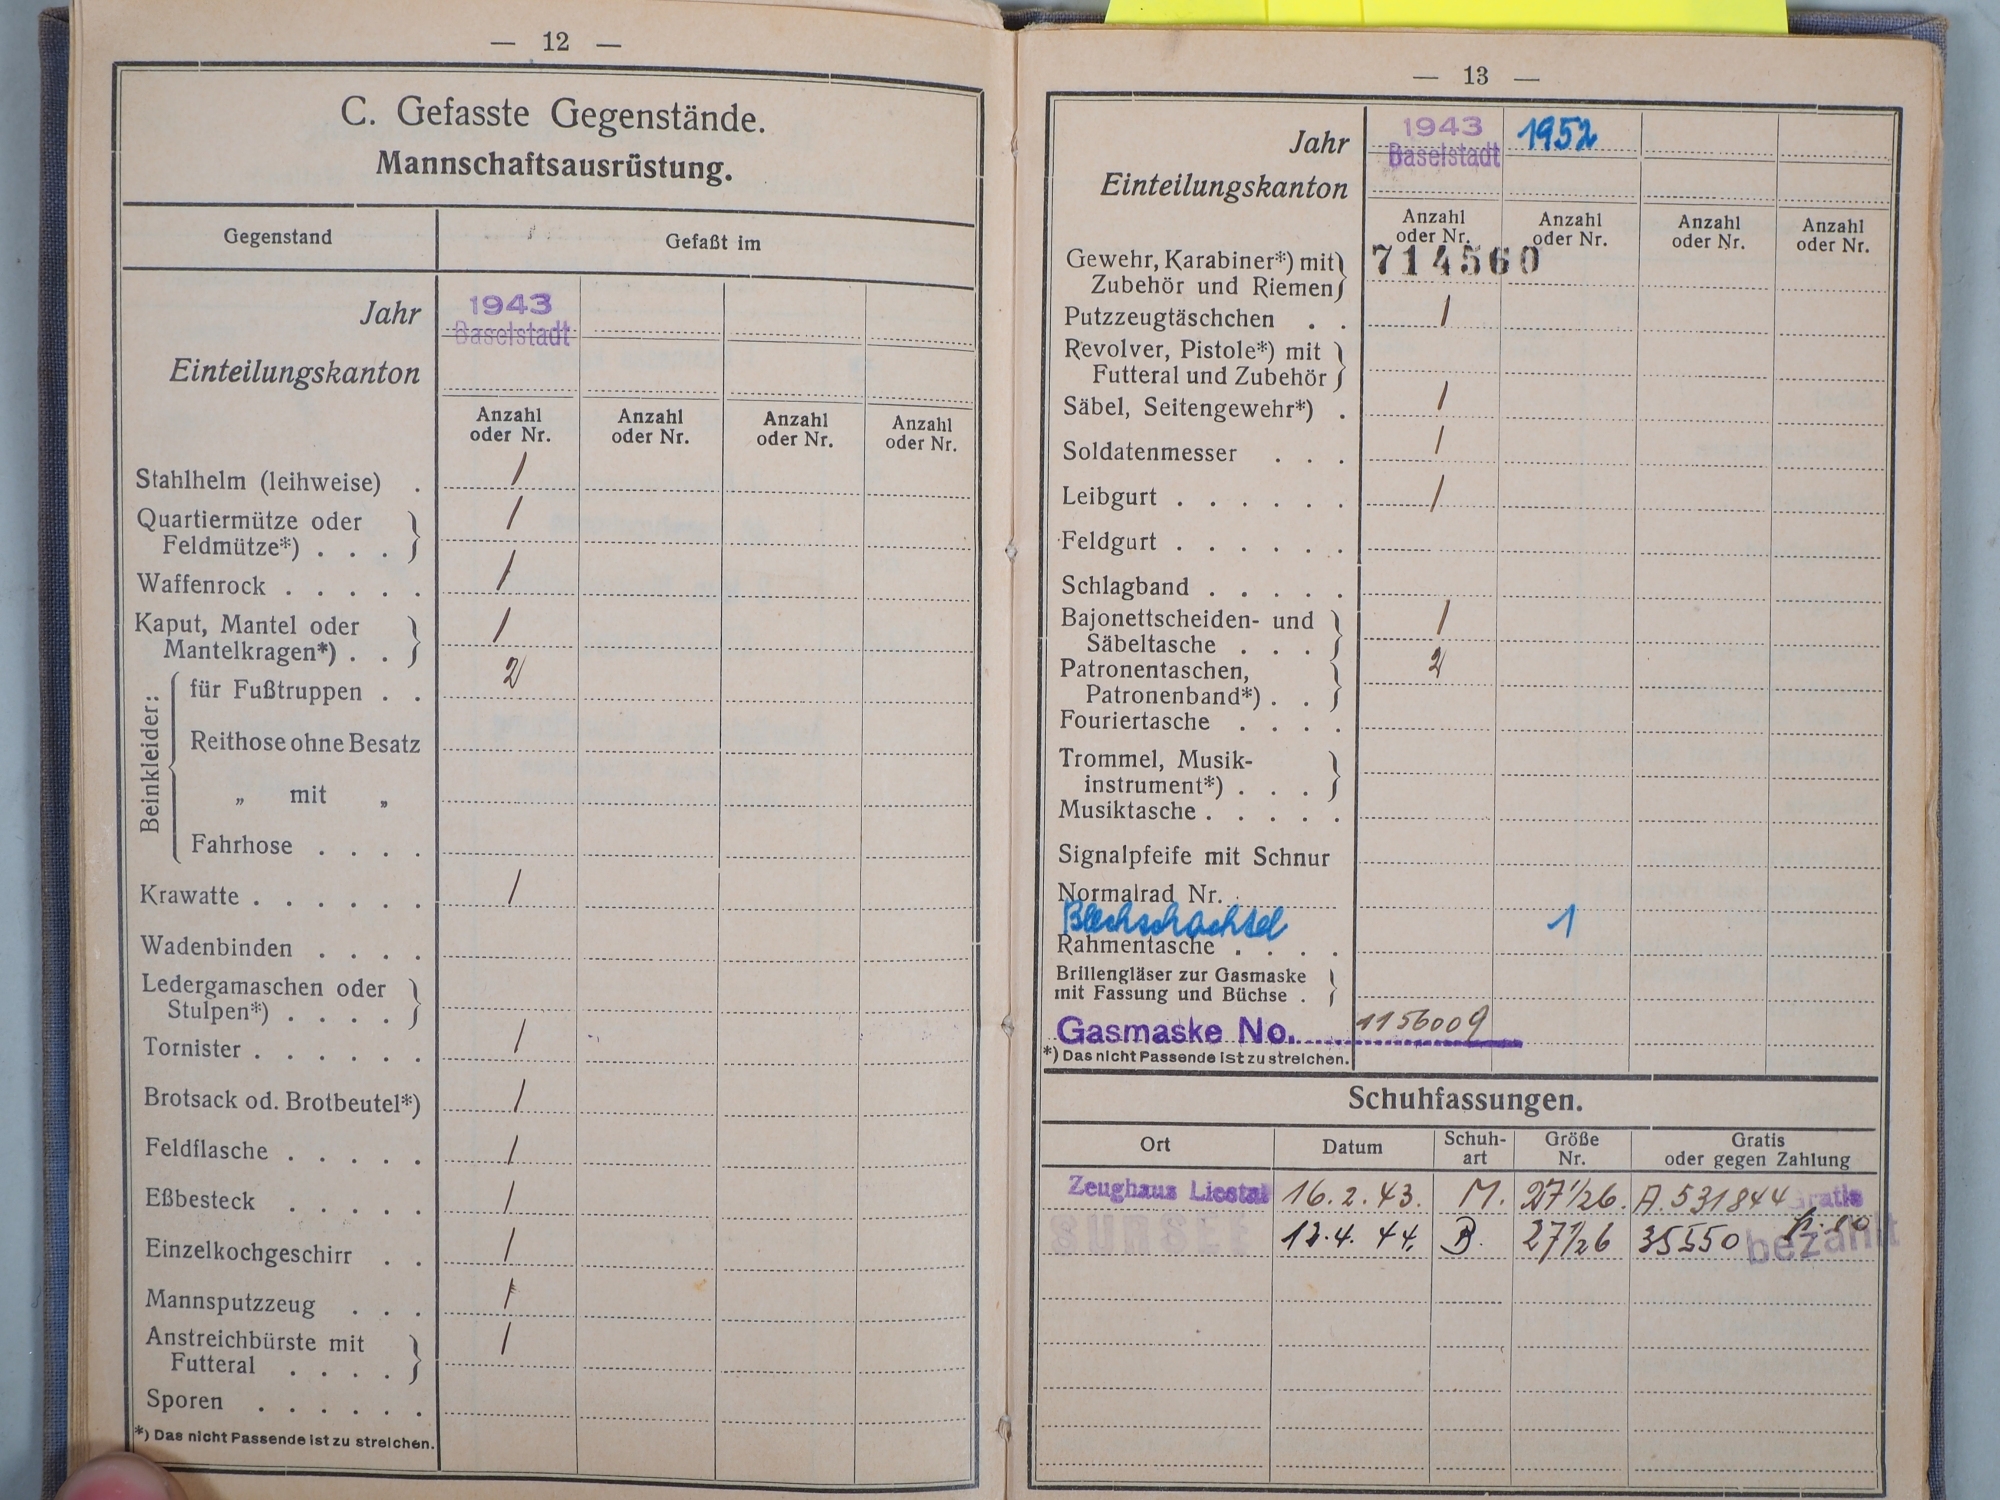 — 12 —
C. Gefasste Gegenstände.
Mannschaftsausrüstung.
Gegenstand Gefaßt im
Jahr 1943
Baselstadt
Einteilungskanton
Anzahl oder Nr. Anzahl oder Nr. Anzahl oder Nr. Anzahl oder Nr.
Stahlhelm (leihweise) . 1
Quartiermütze oder 1
Feldmütze*) . . .
Waffenrock . . . . . 1
Kaput, Mantel oder 1
Mantelkragen*) . .
Beinkleider:
für Fußtruppen . . 2
Reithose ohne Besatz
„ mit „
Fahrhose . . . .
Krawatte . . . . . . 1
Wadenbinden . . . .
Ledergamaschen oder
Stulpen*) . . . .
Tornister . . . . . . 1
Brotsack od. Brotbeutel*) 1
Feldflasche . . . . . 1
Eßbesteck . . . . . 1
Einzelkochgeschirr . . 1
Mannsputzzeug . . . 1
Anstreichbürste mit 1
Futteral . . . .
Sporen . . . . . .
*) Das nicht Passende ist zu streichen.
— 13 —
Jahr 1943 1952
Baselstadt
Einteilungskanton
Anzahl oder Nr. Anzahl oder Nr. Anzahl oder Nr. Anzahl oder Nr.
Gewehr, Karabiner*) mit 714560
Zubehör und Riemen
Putzzeugtäschchen . . 1
Revolver, Pistole*) mit
Futteral und Zubehör
Säbel, Seitengewehr*) . 1
Soldatenmesser . . . 1
Leibgurt . . . . . . 1
Feldgurt . . . . . .
Schlagband . . . . .
Bajonettscheiden- und 1
Säbeltasche . . . .
Patronentaschen, 2
Patronenband*) . .
Fouriertasche . . . .
Trommel, Musik-
instrument*) . . .
Musiktasche . . . . .
Signalpfeife mit Schnur
Normalrad Nr. .
Blechschachtel 1
Rahmentasche . . . .
Brillengläser zur Gasmaske
mit Fassung und Büchse .
Gasmaske No. 1156009
*) Das nicht Passende ist zu streichen.
Schuhfassungen.
Ort Datum Schuh-art Größe Nr. Gratis oder gegen Zahlung
Zeughaus Liestal 16.2.43. M. 27½6. A. 531844 Gratis
SURSEE 12.4.44. B. 27½6 35550 bezahlt